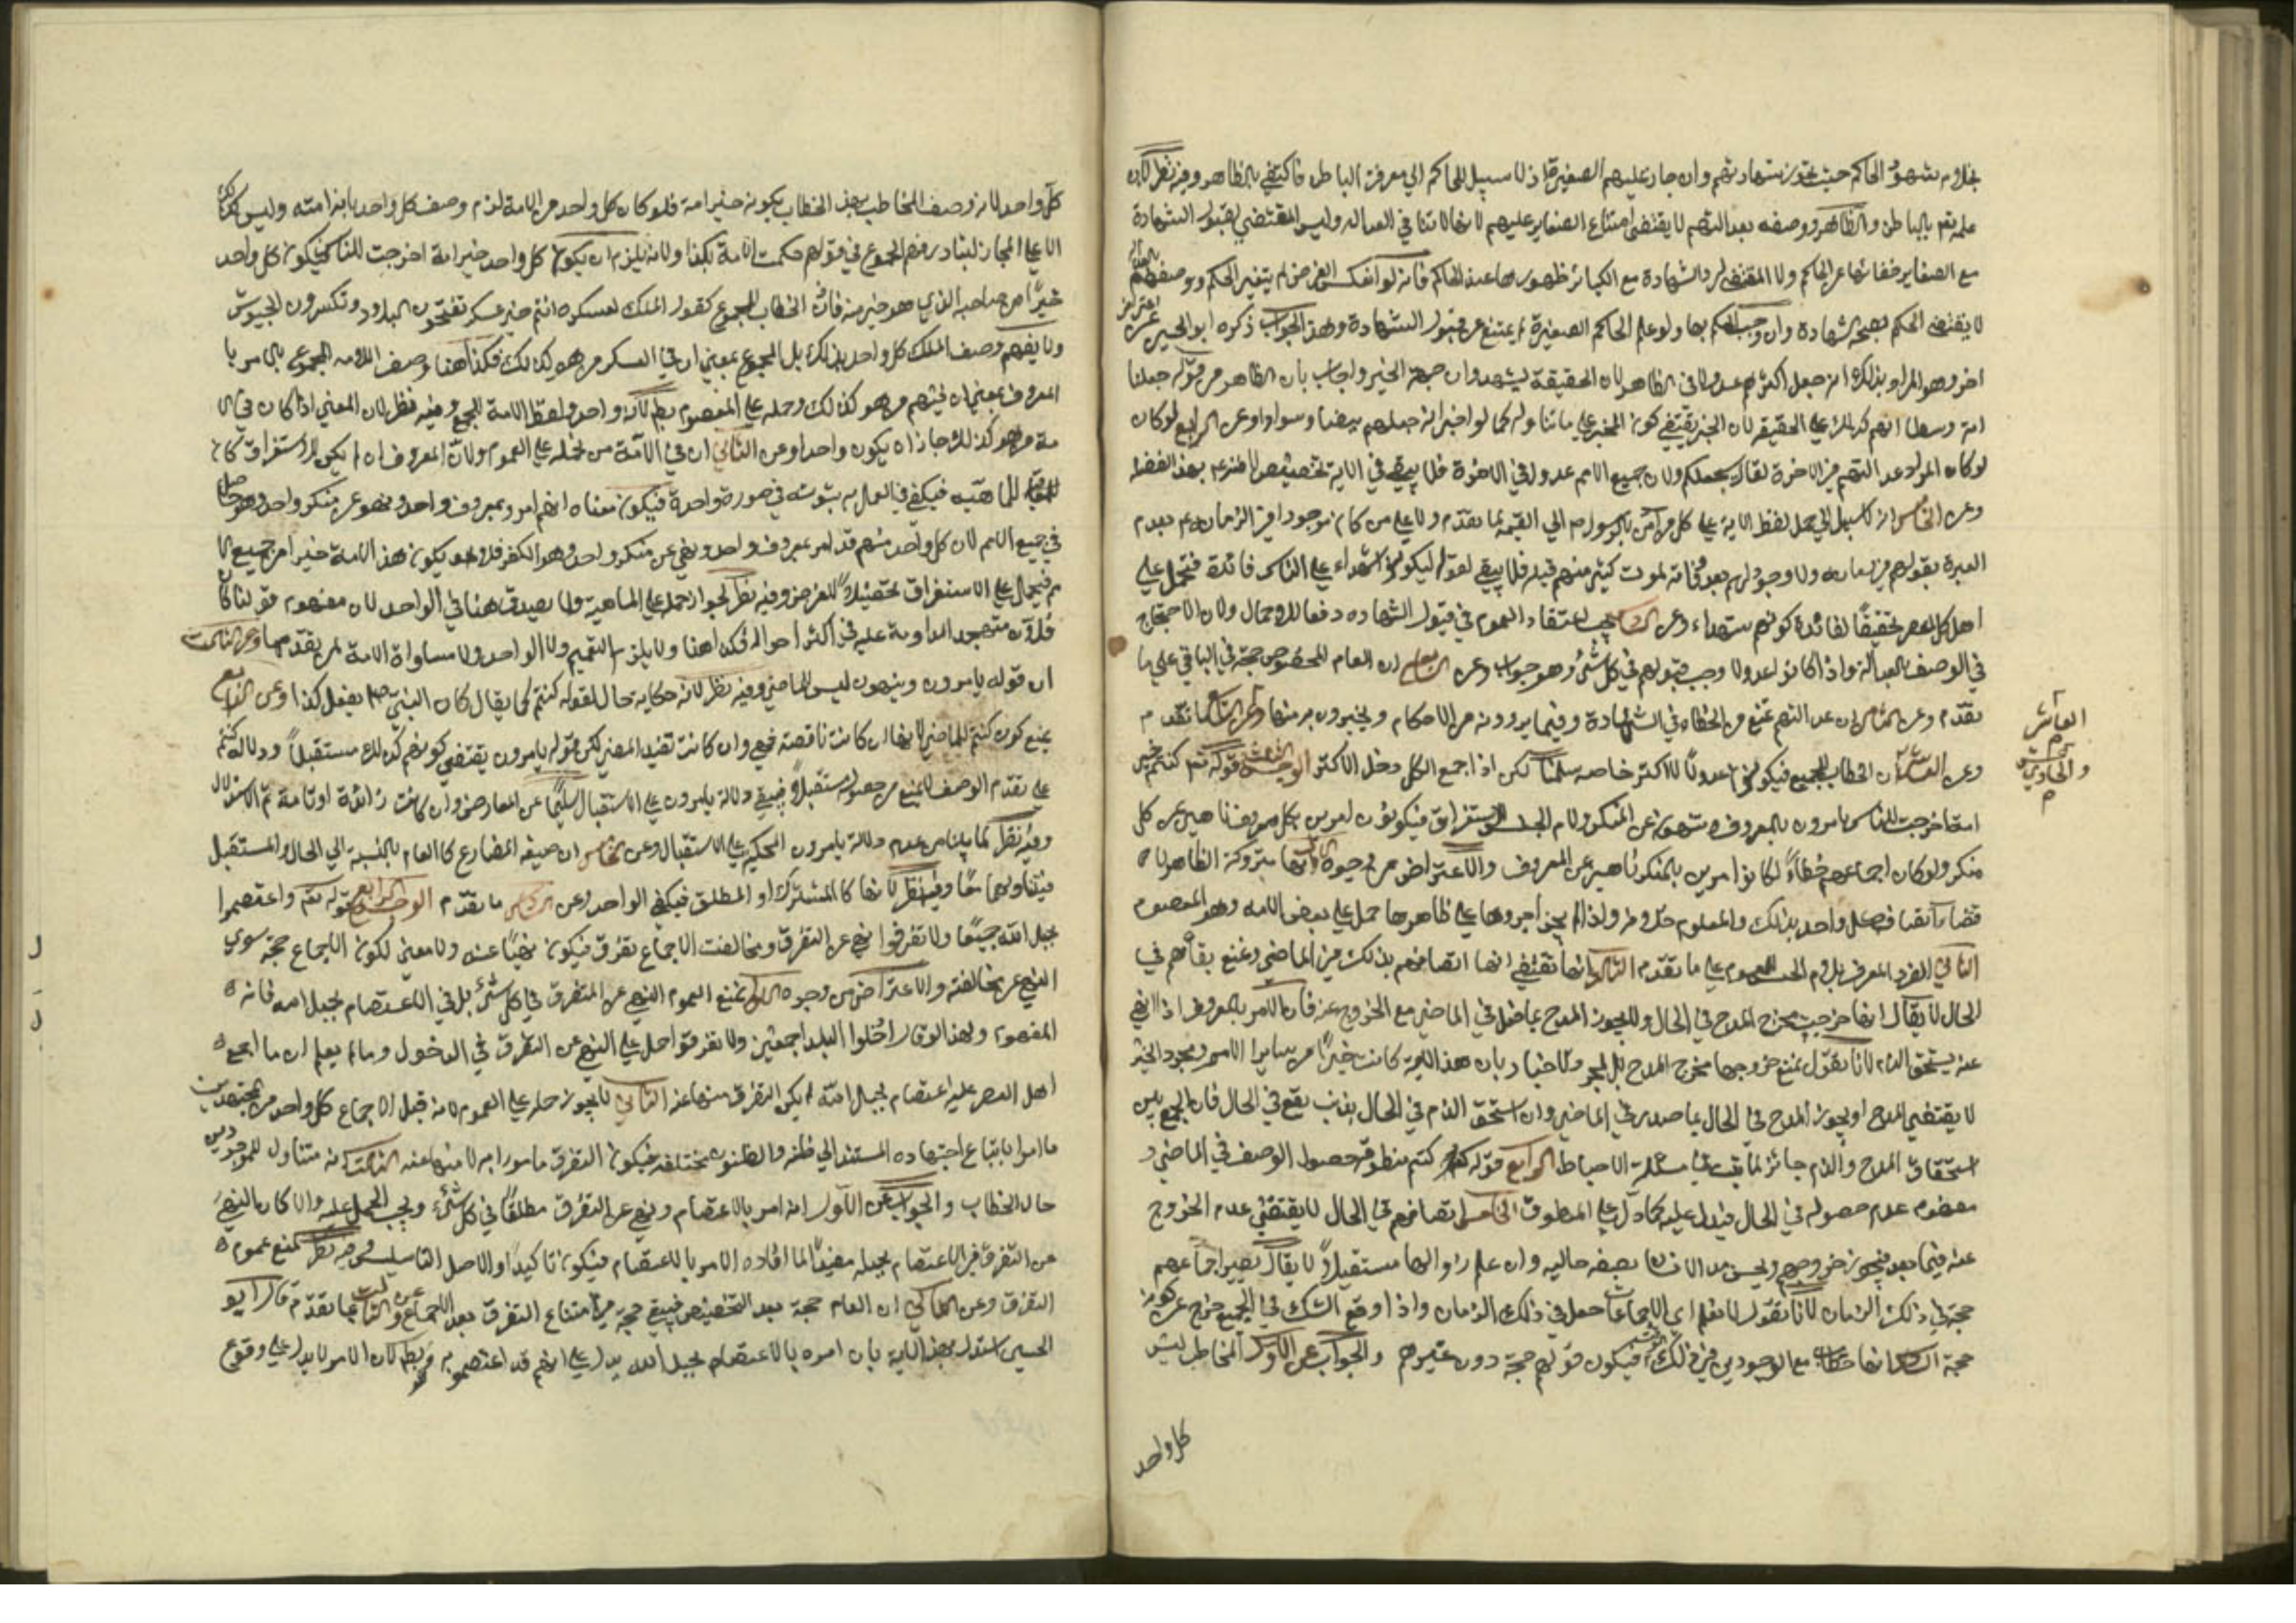 بخلاف شهود الحاكم حيث يجوز شهادتهم وان جاز عليهم الصغيرة اذ لا سبيل للحاكم الى معرفة الباطن فاكتفي بالظاهر وفيه نظر لان
علمه تعم بالباطن والظاهر ووصفه بعدالتهم لا يقتضي امتناع الصغاير عليهم لانها لا تنافي العدالة وليس المقتضي لقبول الشهادة
مع الصغاير خفائها عن الحاكم ولا المقتضي لرد الشهادة مع الكبائر ظهورها عند الحاكم فانه لو انعكس الفرض لم يتغير الحكم ووصفهم
لا يقتضي الحكم بصحة الشهادة وان وجب الحكم بها ولو علم الحاكم الصغيرة لم يمتنع من قبول الشهادة وهذا الجواب ذكره ابو الحسين
اخر وهو المراد بذلك انه جعل اكثرهم عدولا في الظاهر لان الحقيقة ليشهدوا من جهة الخبر واجاب بان الظاهر من قوله جعلنا
امة وسطا انهم كذلك على الحقيقة لان الخبر يقتضي كون المخبر على ما تناوله كما لو اخبر انه جعلهم بيضا وسوادا وعن الرابع لو كان
لو كان المراد عدالتهم في الاخرة لقال سيجعلكم ولان جميع الامم عدول في الاخرة فلا يبقى في الاية تخصيص لامته عم بهذا الفضل
وعن الخامس انه لا سبيل الى حمل لفظ الاية على كل من امن بالرسول صم الى القيمة لما تقدم ولا على من كان موجودا في الزمان عم بعدم
العبرة بقولهم في زمانه ولا وجود لهم بعد وفاته لموت كثير منهم قبله فلا يبقى لقوله ليكونوا شهداء على الناس فائدة فتحمل على
اهل كل العصر تحقيقا لفائدة كونهم شهداء وعن يجب اعتقاد العموم في قبول الشهادة دفعا للاجمال ولان الاحتجاج
في الوصف بالعدالة واذا كانوا عدولا وجب قبولهم في كل شئ وهو جواب وعن السابع ان العام المخصوص حجة في الباقي على ما
تقدم وعن الثامن ان عدالتهم تمنع من الخطاء في الشهادة وفيما يردونه من الاحكام ويخبرون به منها وعن التاسع ما تقدم
العاشر
م
والحادي عشر
م
وعن ان الخطاب للجميع فيكونوا عدولا للاكثر خاصه سلمنا لكن اذا جمع الكل دخل الاكثر الوجه الثالث قوله تعم كنتم خير
امة اخرجت للناس تامرون بالمعروف وتنهون عن المنكر ولام الجنس للاستغراق فيكونون امرين بكل معروف ناهين عن كل
منكر ولو كان اجماعهم خطاءً لكانوا امرين بالمنكر ناهين عن المعروف والاعتراض من وجوه انها متروكة الظاهر لا
تتصف كل واحد بذلك والمعلوم خلافه واذا لم يجز اجروها على ظاهرها حمل على بعض الامة وهو المعصوم
الثاني المفرد المعرف بلام الجنس على ما تقدم الثالث انها تقتضي انها اتصافهم بذلك في الماضي ونمنع بقائهم في
الحال لا يقال انها خرجت مخرج المدح في الحال ولا يجوز المدح بما فعل في الماضي مع الخروج عنه فان الامر بالمعروف اذا نهي
عنه يستحق الذم لانا نقول نمنع خروجها مخرج المدح بل لمجرد الاخبار بان هذه الامة كانت خيرا من سائر الامم ومجرد الخبر
لا يقتضي المدح او يجوز المدح في الحال بما صدر في الماضي وان استحق الذم في الحال بذنب يقع في الحال فان الجمع بين
استحقاق المدح والذم جائز لما ثبت في مسئلة الاحباط الرابع قوله كنتم منطوقه حصول الوصف في الماضي و
مفهوم عدم حصوله في الحال فيدل عليه كما دل على المنطوق الخامس اتصافهم في الحال لا يقتضي عدم الخروج
عنه فيما بعد فيجوز خروجهم ويحسن مدح الانسان بصفة حاليه وان علم زوالها مستقبلا لا يقال يصير اجماعهم
حجة في ذلك الزمان لانا نقول لا نعلم اي الاجماعات حصل في ذلك الزمان واذا وقع الشك في الجميع خرج عن كونه
حجة السادس انها خطاب مع الموجودين في ذلك فيكون قولهم حجة دون غيرهم والجواب عن الاول المخاطب ليس
كل واحد
كل واحد لانه وصف المخاطب بهذا الخطاب بكونه خير امة فلو كان كل واحد من الامة لزم وصف كل واحد بانه امة وليس كذلك
الا على المجاز لتبادر فهم المجموع في قولهم حكمت الامة بكذا ولانه يلزم ان يكون كل واحد خير امة اخرجت للناس فيكون كل واحد
خيرا من صاحبه الذي هو خير منه فان الخطاب للمجموع كقول الملك لعسكره انتم خير عسكر تفتحون البلاد وتكسرون الجيوش
ولا يفهم وصف الملك كل واحد بذلك بل المجموع بمعنى ان في العسكر من هو كذلك فكذا هنا وصف الامة المجموع بالامر با
لمعروف بمعنى ان فيهم من هو كذلك وحمله على المعصوم بط لانه واحد ولفظ الامة للجمع وفيه نظر لان المعنى اذا كان في الا
مة من هو كذلك جاز ان يكون واحدا وعن الثاني ان في الامة من يحمله على العموم ولان المعروف ان لم يكن للاستغراق كان
للماهية فيكفي في العمل به بثبوته في صورة واحدة فيكون معناه انهم امروا بمعروف واحد ونهوا عن منكر واحد وهو حاصل
في جميع الامم لان كل واحد منهم قد امر بمعروف واحد ونهى عن منكر واحد وهو الكفر فلا يكون هذه الامة خيرا من جميع الا
مم فيحمل على الاستغراق تحصيلا للغرض وفيه نظر لجواز حمله على الماهية ولا يصدق هنا في الواحد لان مفهوم قولنا كان
فلان متهجدا المداومة عليه في اكثر احواله فكذا هنا ولا يلزم التعميم ولا الواحد ولا مساواة الامة لمن تقدمها وعن الثالث
ان قوله يامرون وينهون ليس للماضي وفيه نظر لانه حكاية حال لقوله كنتم كما يقال كان النبي صم يفعل كذا وعن الرابع
يمنع كون كنتم للماضي لانها ان كانت ناقصة فهي وان كانت تفيد المضي لكن قوله يامرون يقتضي كونهم كذلك مستقبلا ودلالة كنتم
على تقدم الوصف لا يمنع من حصوله مستقبلا فيبقى دلالة يامرون على الاستقبال سليما عن المعارض وان كانت زائدة او تامة تم الاستدلال
وفيه نظر لما بينا من عدم دلالة يامرون المحكية على الاستقبال وعن الخامس ان صيغة المضارع كالعام بالنسبة الى الحال والمستقبل
فيتناولهما معا وفيه نظر لانها كالمشترك او المطلق فيكفي الواحد وعن السادس ما تقدم الوجه الرابع قوله تعم واعتصموا
بحبل الله جميعا ولا تفرقوا نهي عن التفرق ومخالفت الاجماع تفرق فيكون نهيا عنه ولا معنى لكون الاجماع حجة سوى
النهي عن مخالفته والاعتراض من وجوه الاول نمنع العموم النهي عن التفرق في كل شئ بل في الاعتصام بحبل الله فانه
المفهوم ولهذا لو قال ادخلوا البلد اجمعين ولا تفرقوا حمل على النهي عن التفرق في الدخول وما لم يعلم ان ما اجمع
اهل العصر عليه اعتصام بحبل الله لم يكن التفرق منهيا عنه الثاني لا يجوز حمله على العموم لانه قبل الاجماع كل واحد من المجتهدين
مامور باتباع اجتهاده المستند الى ظنه والظنون مختلفة فيكون التفرق مامورا به لا منهيا عنه الثالث انه متناول للموجودين
حال الخطاب والجواب عن الاول انه امر بالاعتصام ونهى عن التفرق مطلقا في كل شئ ويجب الحمل عليه والا كان النهي
عن التفرق في الاعتصام بحبله مفيدا لما افاده الامر بالاعتصام فيكون تاكيدا والاصل التاسيس وفيه نظر نمنع عموم
التفرق وعن الثاني ان العام حجة بعد التخصيص فيبقى حجة في امتناع التفرق بعد الاجماع وعن الثالث بما تقدم قال ابو
الحسين استدل بهذه الاية بان امره بالاعتصام بحبل الله يدل على انهم قد اعتصموا به وهو بط لان الامر لا يدل على وقوع